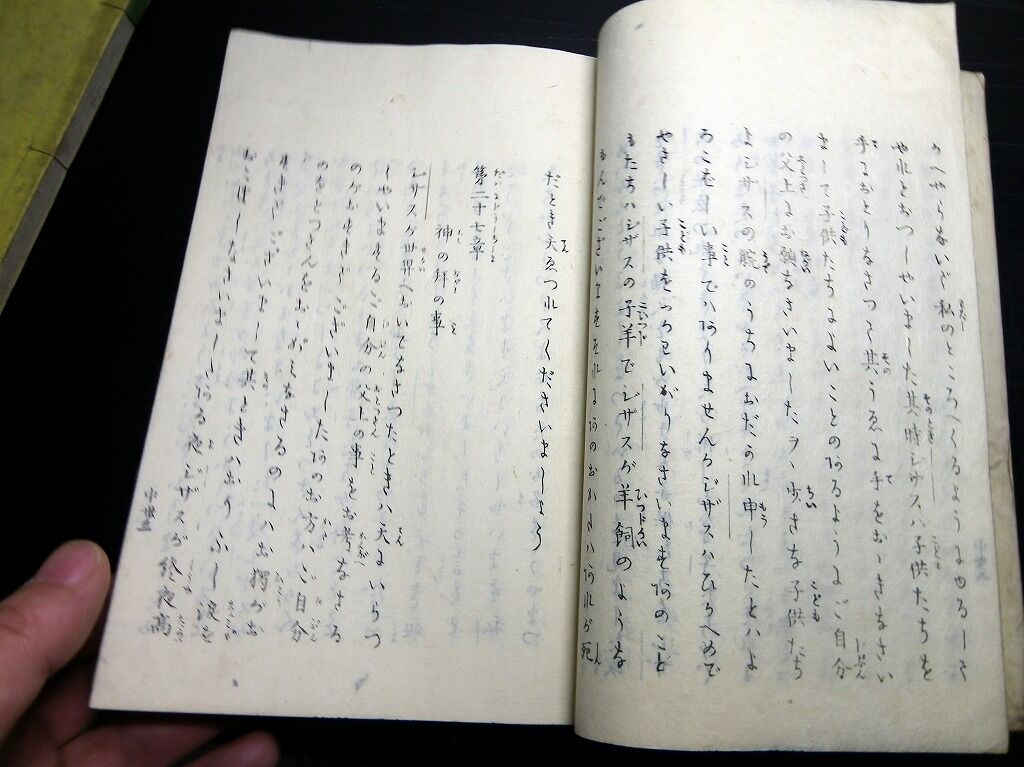 らへやらないで私のところへくるようにゆるして
やれとおつしやいました其時ジザスハ子供たちを
手におとりなさつて其うゑに手をおゝきなさい
まして子供たちによいことのあるようにご自分
の父上にお願なさいましたヲヽ少さな子供たち
よジザスの腕のうちにおだかれ申したとハよ
ろこばしい事でハありませんかジザスハひかへめで
やさしい子供をかわいがりなさいますあのこど
もたちハジザスの子羊でジザスが羊飼のような
もんでございますそれにあのおかたハあれが死ん
だとき天ゑつれてくださいましよう
第二十七章
神の拜の事
ジザスが世界へおいでなさつたときハ天にいらつ
しやいまするご自分の父上の事をお考なさる
のがおすきでございましたあのお方ハご自分
のおとつさんをお拜みなさるのにハお獨がお
すきでございまして其ときハお祈りふし涙を
おこぼしなさいましたある夜ジザスが終夜高